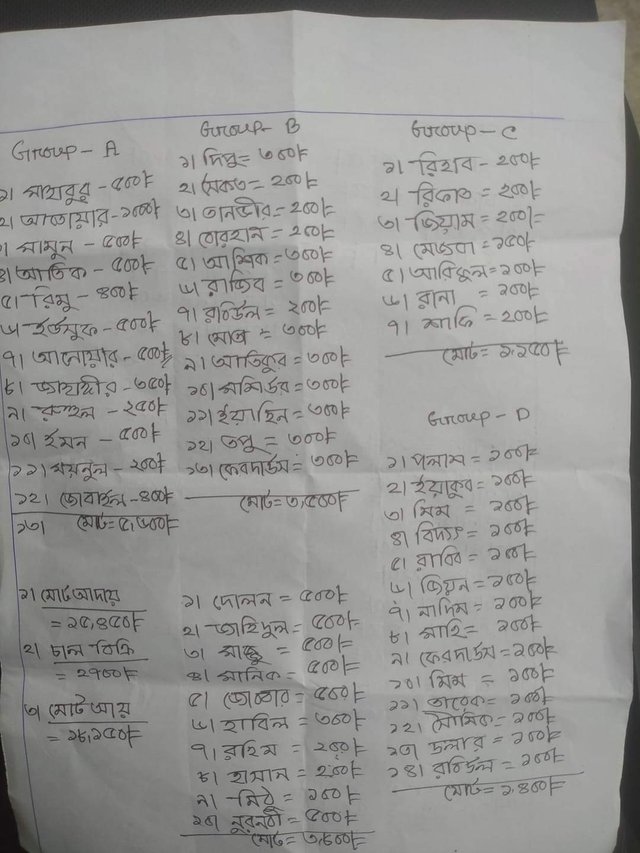 Group - A
১। মাহাবুর - ৫০০৳
২। আতোয়ার - ১০০০৳
৩। মামুন - ৫০০৳
৪। আতিক - ৫০০৳
৫। রিমু - ৪০০৳
৬। ইউসুফ - ৫০০৳
৭। আনোয়ার - ৫০০৳
৮। জাহাঙ্গীর - ৩৫০৳
৯। রুহুল - ২৫০৳
১০। ইমন - ৫০০৳
১১। ময়নুল - ২০০৳
১২। জোবাইল - ৪০০৳
১৩। মোট = ৫,৬০০৳
Group - B
১। দিপু = ৩০০৳
২। সৈকত = ২০০৳
৩। তানভীর = ২০০৳
৪। তোরহান = ২০০৳
৫। আশিক = ৩০০৳
৬। রাজিব = ৩০০৳
৭। রবিউল = ২০০৳
৮। = ৩০০৳
৯। আতিকুর = ৩০০৳
১০। = ৩০০৳
১১। ইয়াছিন = ৩০০৳
১২। তপু = ৩০০৳
১৩। ফেরদাউস = ৩০০৳
মোট = ৩,৫০০৳
Group - C
১। রিহাব - ২০০৳
২। রিফাত = ২০০৳
৩। জিয়াম = ২০০৳
৪। মেজবা = ১৫০৳
৫। আরিফুল = ১০০৳
৬। রানা = ১০০৳
৭। শাকি = ২০০৳
মোট = ১,১৫০৳
Group - D
১। পলাশ = ১০০৳
২। ইয়াকুব = ১০০৳
৩। মিম = ১০০৳
৪। বিদ্যুৎ = ১০০৳
৫। রাব্বি = ১০০৳
৬। জিয়ন = ১০০৳
৭। নাদিম = ১০০৳
৮। মাহি = ১০০৳
৯। ফেরদাউস = ১০০৳
১০। মিম = ১০০৳
১১। তারেক = ১০০৳
১২। সৌমিক = ১০০৳
১৩। ডলার = ১০০৳
১৪। রবিউল = ১০০৳
মোট = ১,৪০০৳
১। মোট আদায়
= ১৫,৪৫০৳
২। চাল বিক্রি
= ২৭০০৳
৩। মোট আয়
= ১৮,১৫০৳
১। দোলন = ৫০০৳
২। জাহিদুল = ৫০০৳
৩। সাজু = ৫০০৳
৪। মানিক = ৫০০৳
৫। = ৫০০৳
৬। হাবিল = ৩০০৳
৭। রহিম = ২০০৳
৮। হাসান = ২০০৳
৯। মিঠু = ১০০৳
১০। নুরনবী = ৫০০৳
মোট = ৩,৮০০৳